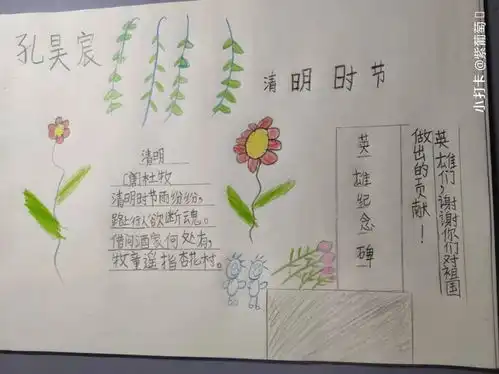 孔昊宸
清明时节
清明
[唐]杜牧
清明时节雨纷纷，
路上行人欲断魂。
借问酒家何处有，
牧童遥指杏花村。
英雄纪念碑
英雄们，谢谢你们对祖国
做出的贡献！
小打卡@紫葡萄